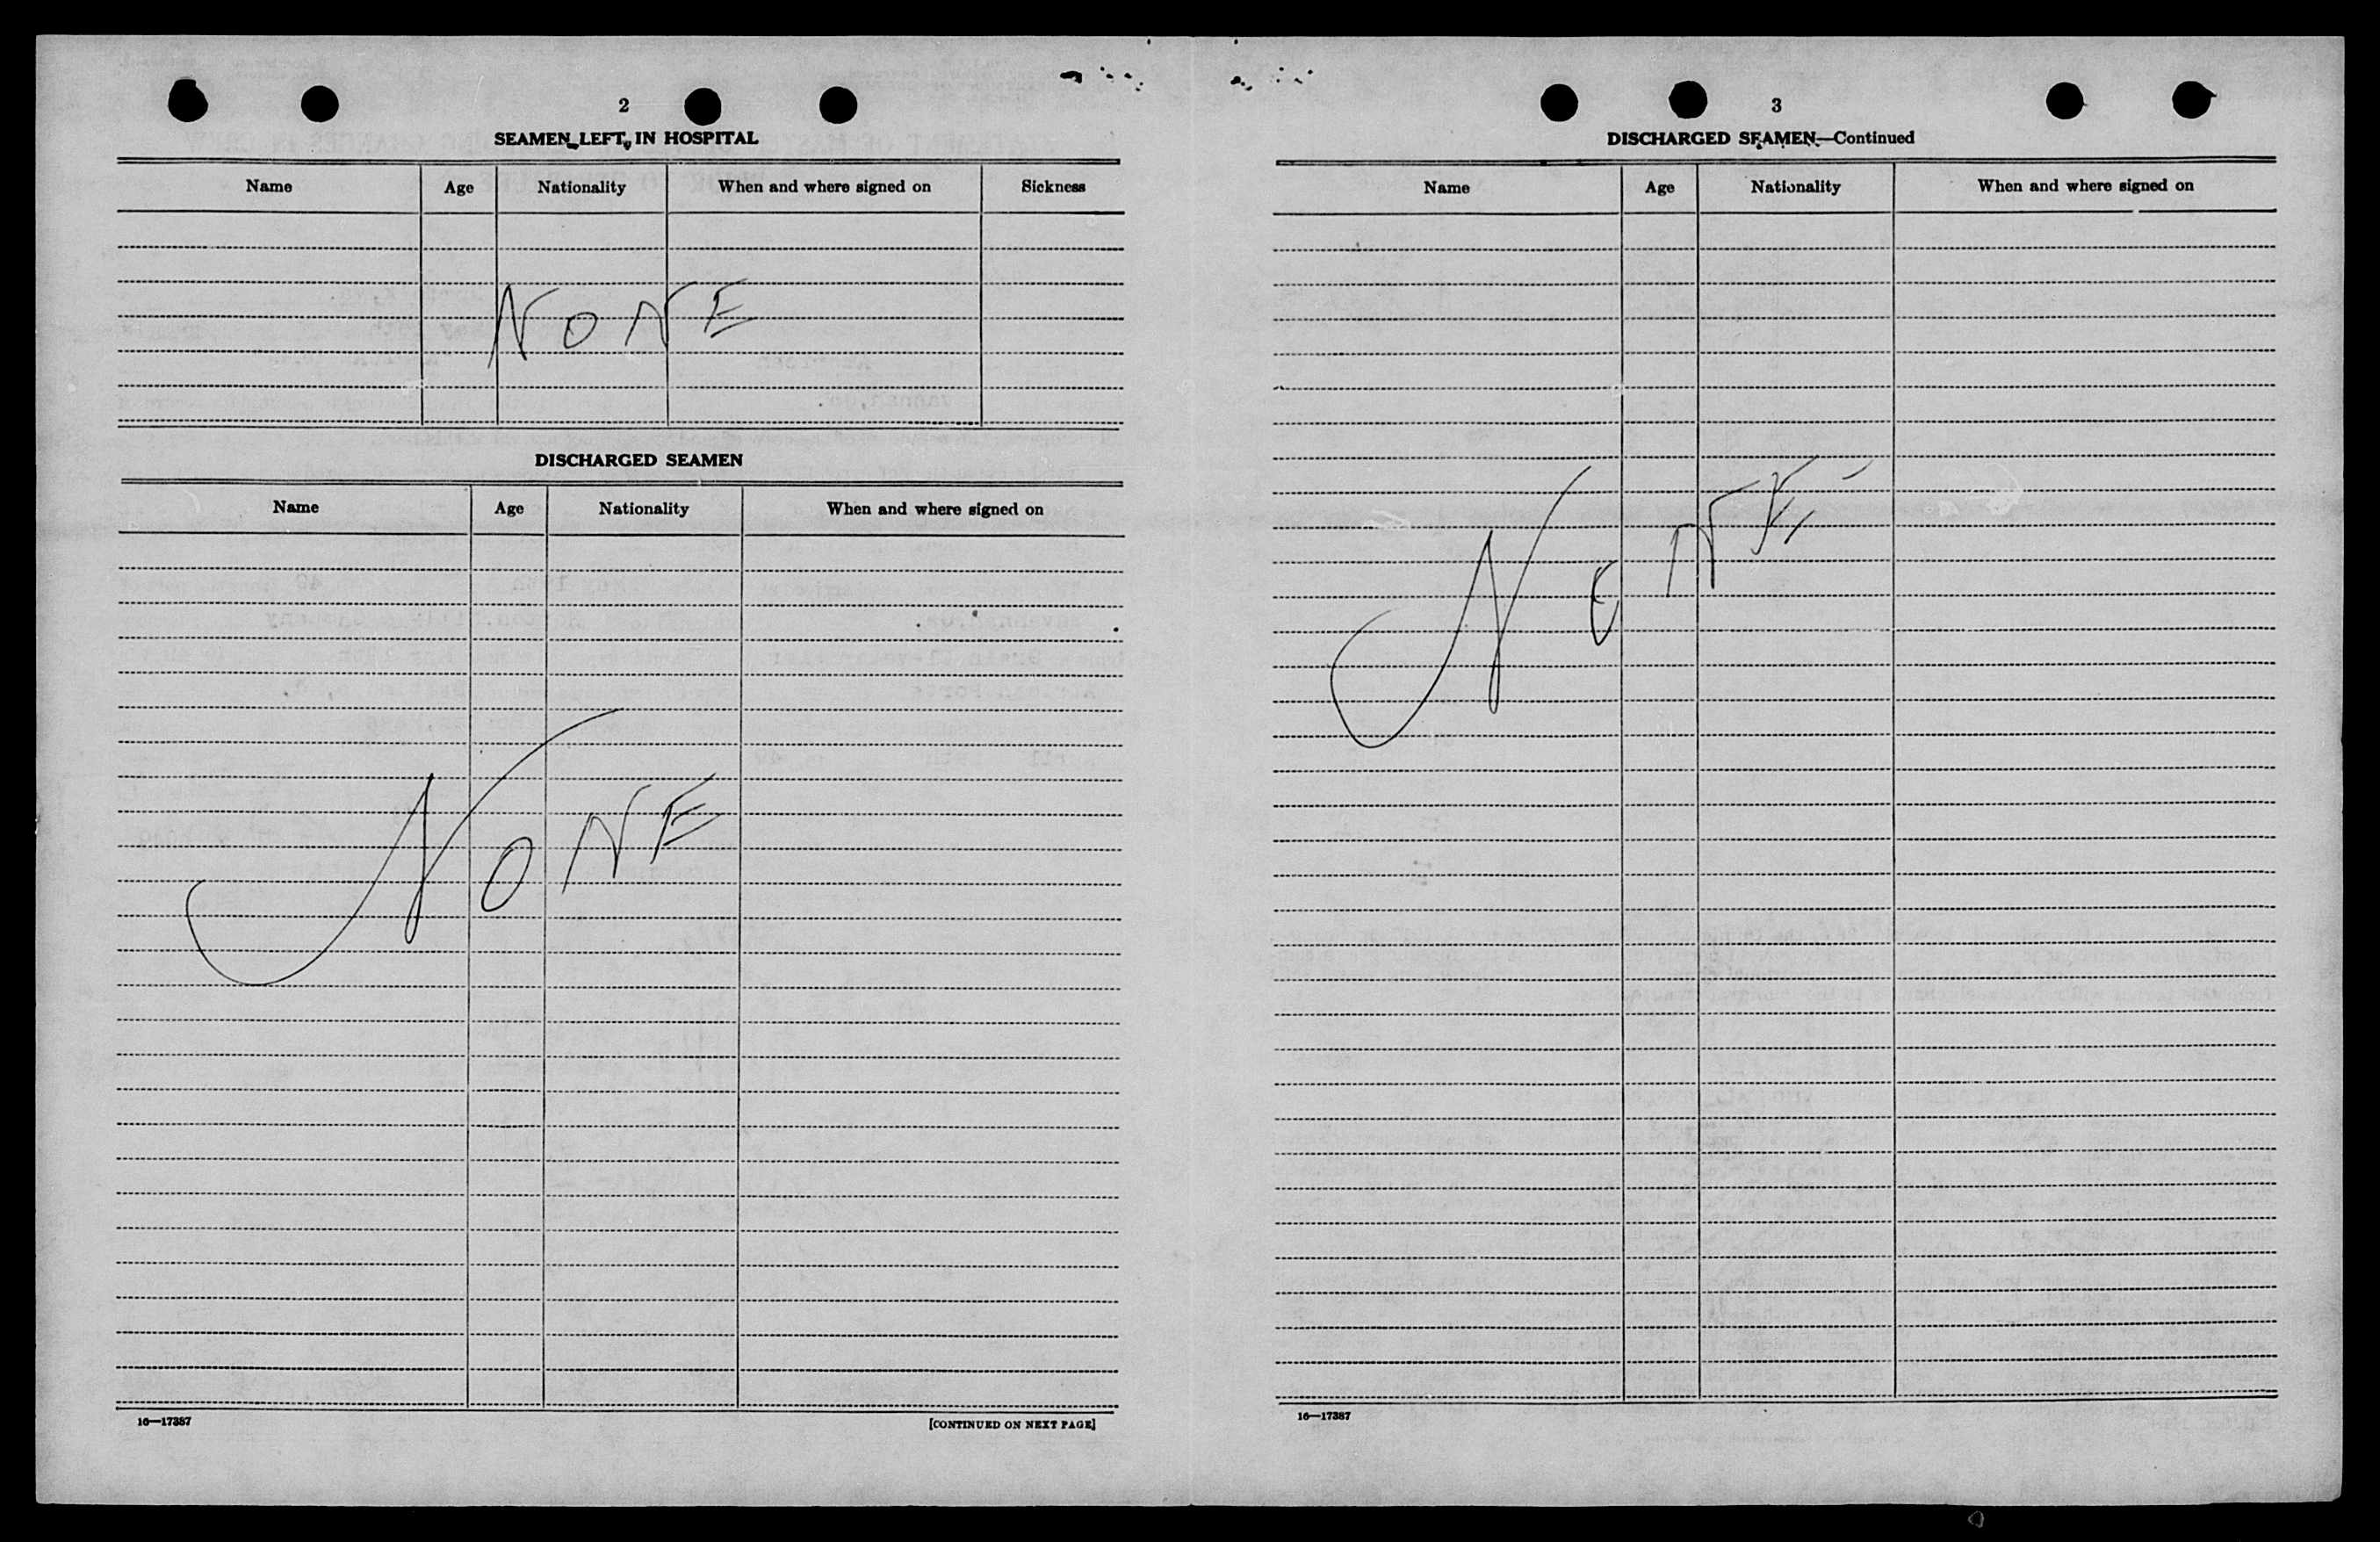 2
SEAMEN LEFT IN HOSPITAL
Name Age Nationality When and where signed on Sickness
NONE
DISCHARGED SEAMEN
Name Age Nationality When and where signed on
NONE
16—17387 [CONTINUED ON NEXT PAGE]
3
DISCHARGED SEAMEN—Continued
Name Age Nationality When and where signed on
NONE
16—17387